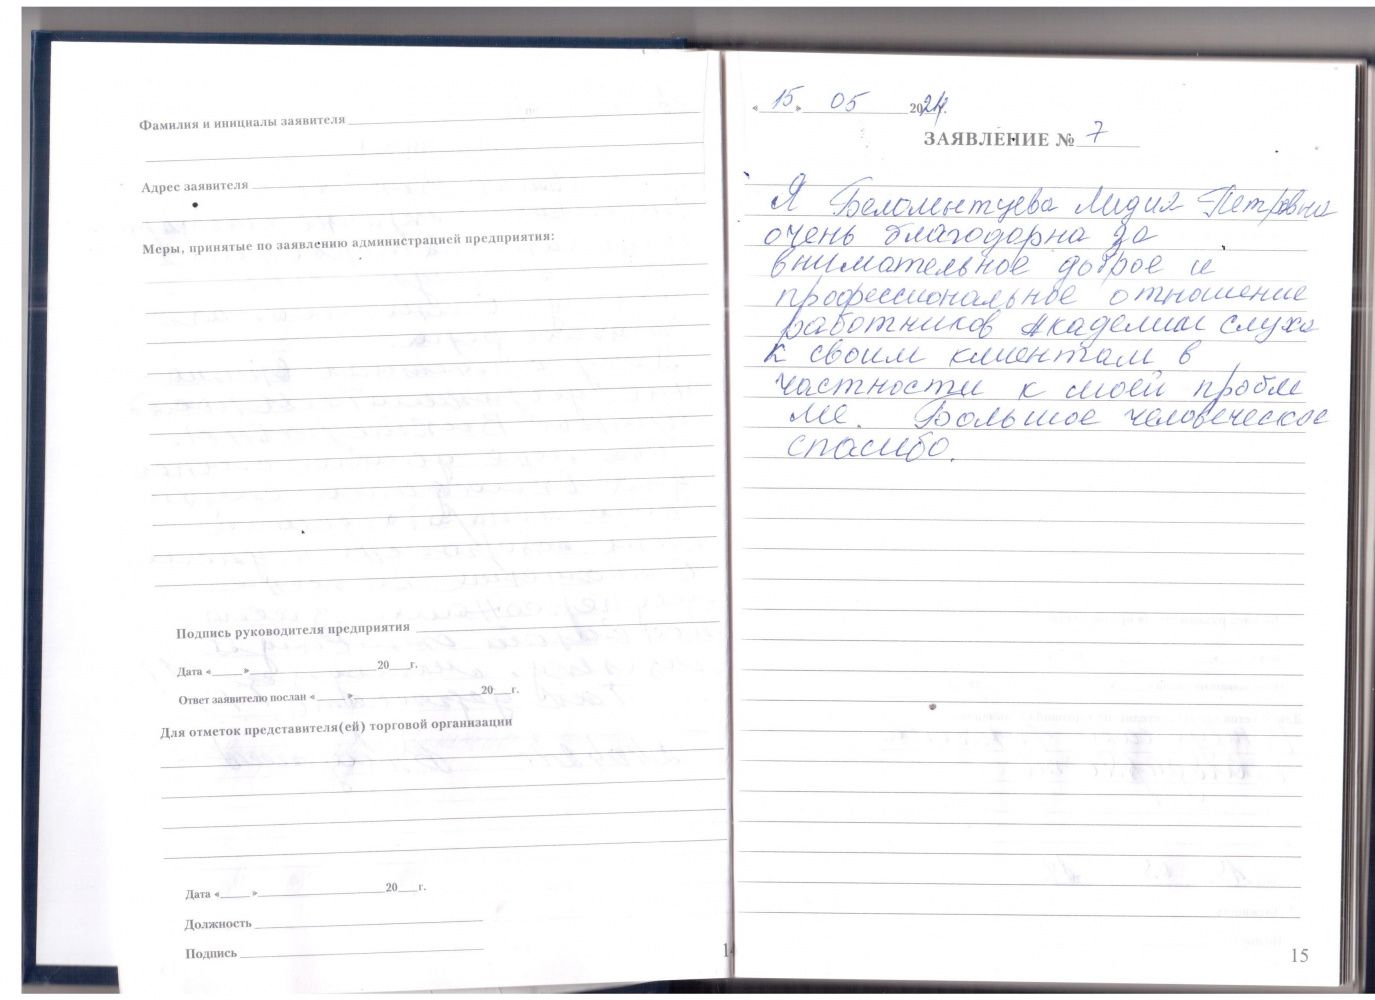 Фамилия и инициалы заявителя
Адрес заявителя
Меры, принятые по заявлению администрацией предприятия:
Подпись руководителя предприятия
Дата « » 20 г.
Ответ заявителю послан « » 20 г.
Для отметок представителя(ей) торговой организации
Дата « » 20 г.
Должность
Подпись
14
« 15 » 05 2024г.
ЗАЯВЛЕНИЕ № 7
Я Беломытцева Лидия Петровна
очень благодарна за
внимательное доброе и
профессиональное отношение
работников Академии слуха
к своим клиентам в
частности к моей пробле
ме. Большое человеческое
спасибо.
15